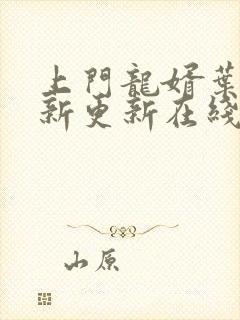 上門龍婿葉
新更新在綫
山原